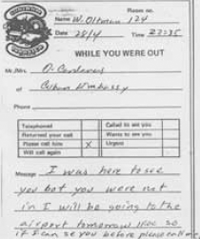 Room no.
Name W. Oltmans 124
Date 28/4 Time 22:35
WHILE YOU WERE OUT
Mr./Mrs. D. Cardenas
of Cuban Embassy
Phone
Telephoned Called to see you
Returned your call Wants to see you
Please call him X Urgent
Will call again
Message I was here to see
you but you were not
in I will be going to the
airport tomorrow so
if I can see you before please call me